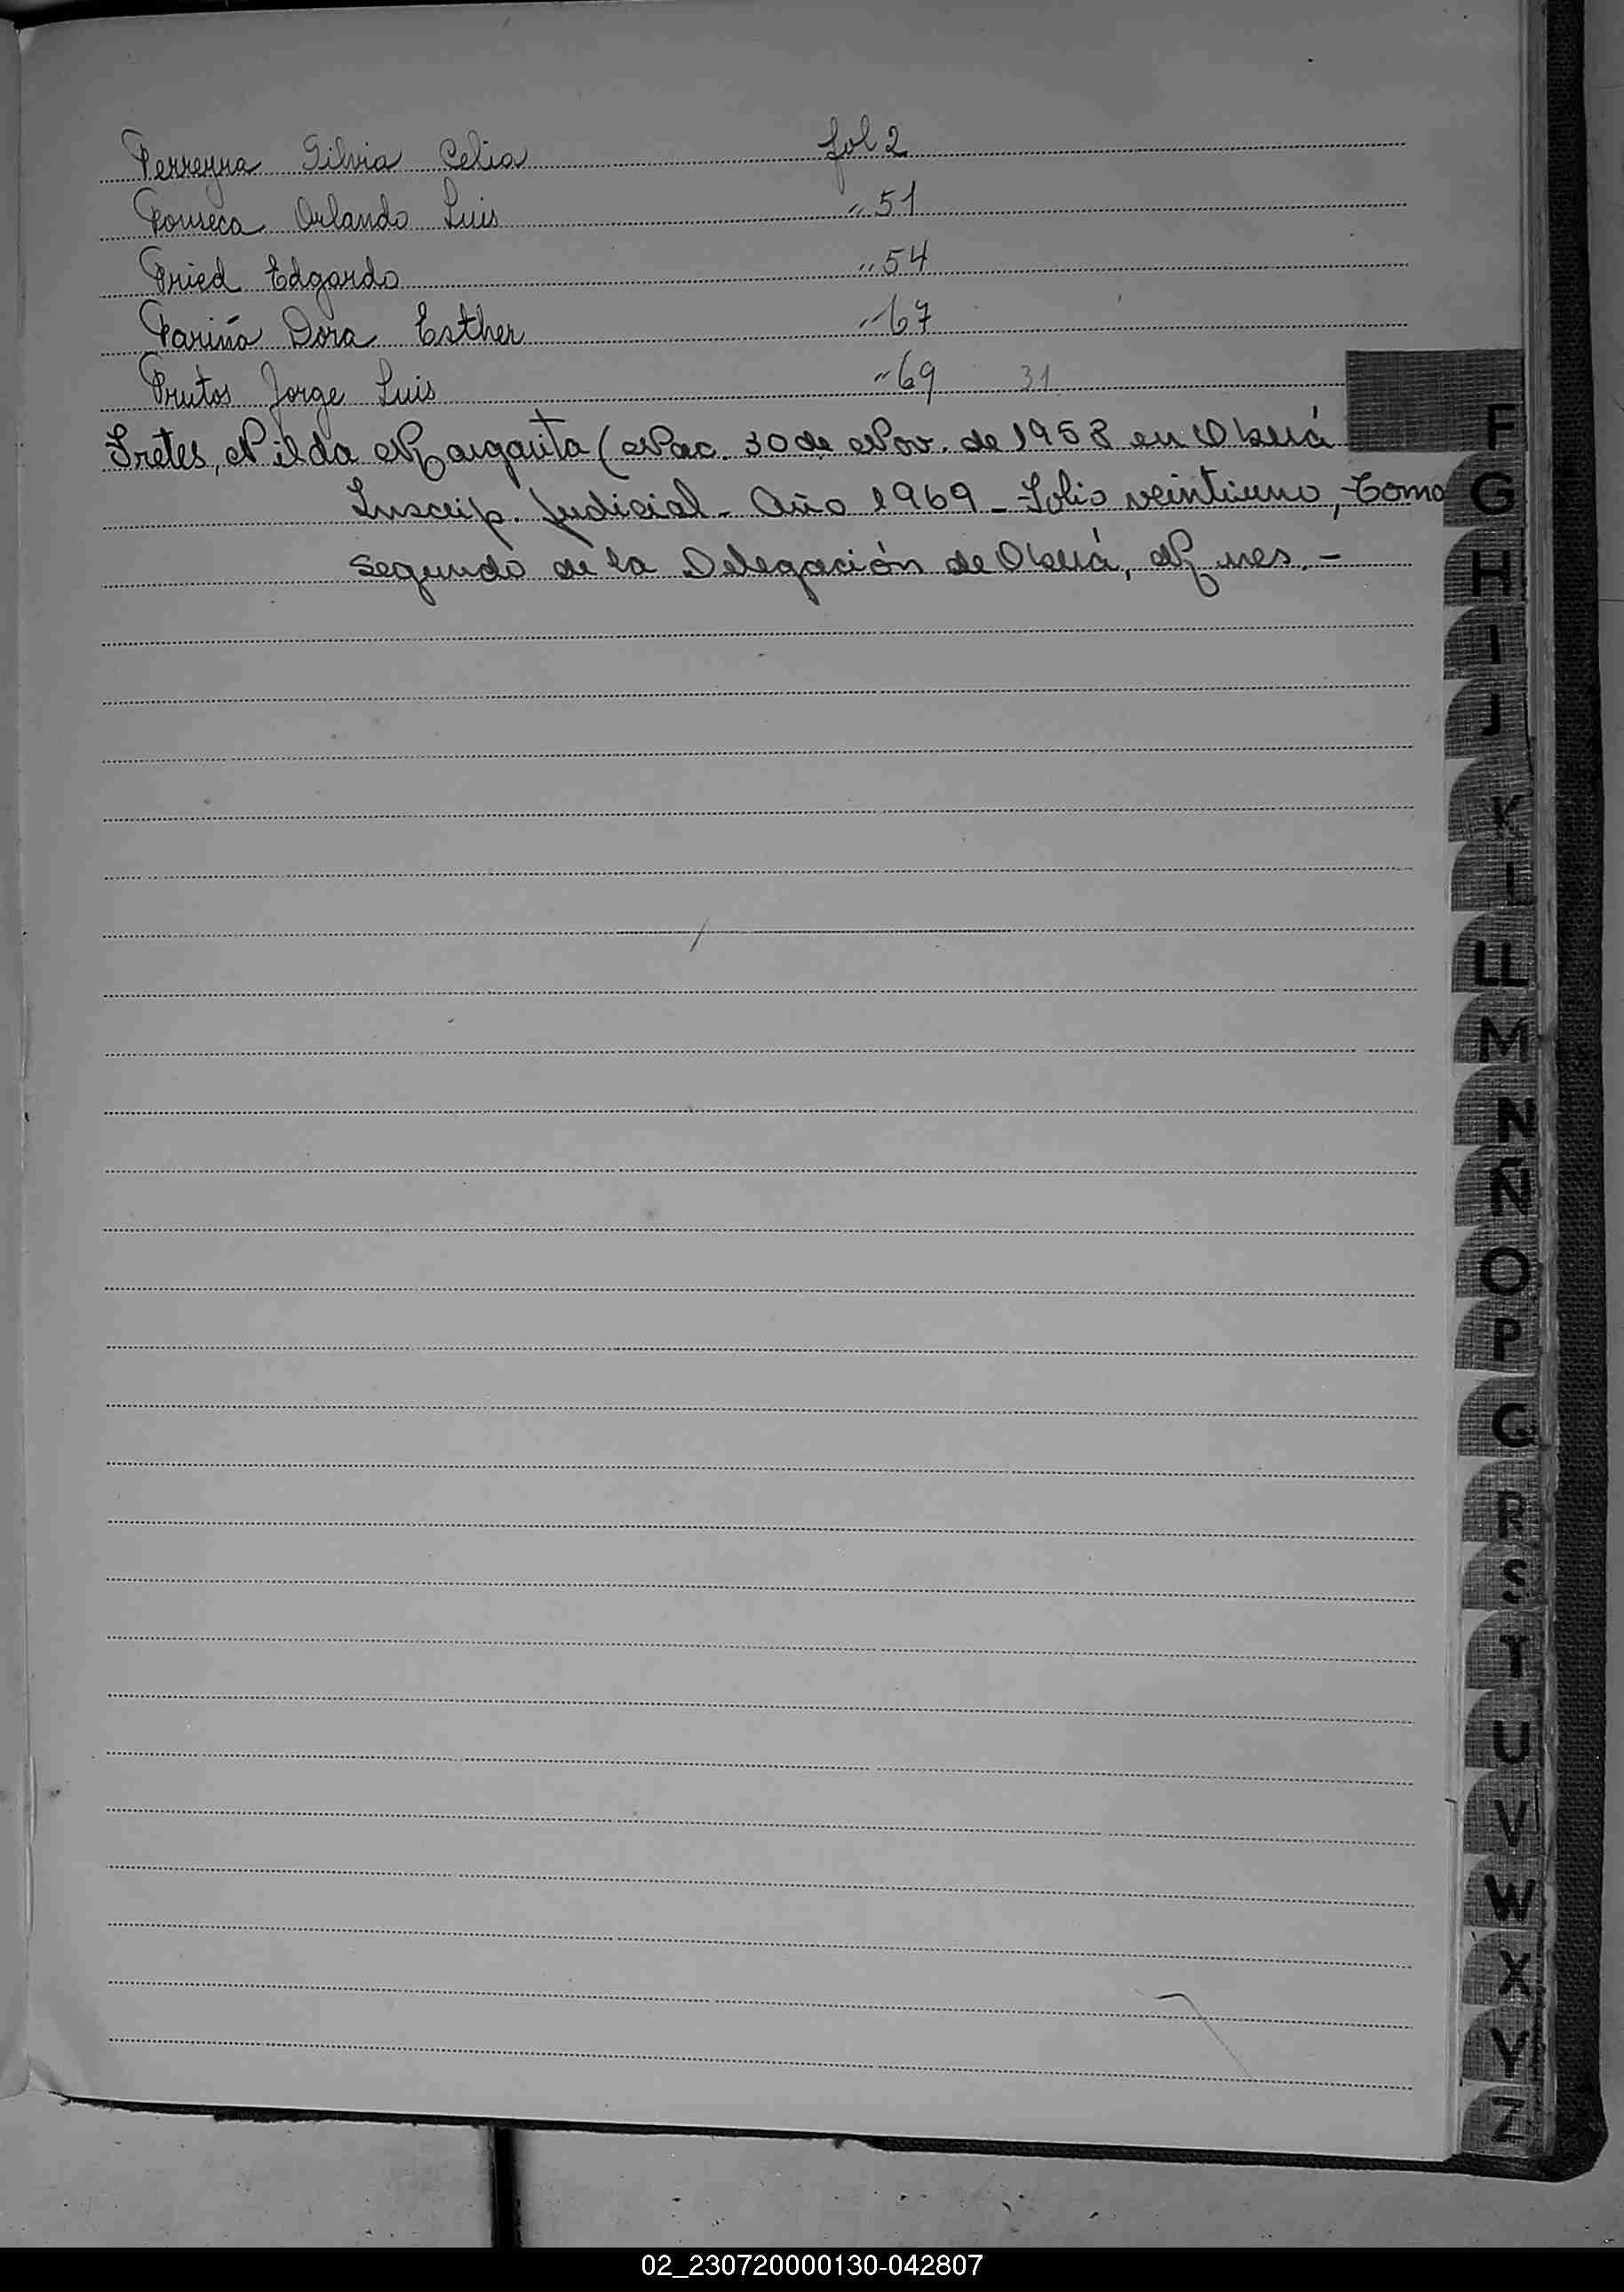 Ferreyra Silvia Celia fol 2
Fonseca Orlando Luis " 51
Fried Edgardo " 54
Fariña Dora Esther " 67
Frutos Jorge Luis " 69 31
Fretes, Nilda Margarita (Nac. 30 de Nov. de 1958 en Oberá
Inscrip. Judicial - Año 1969 - Folio veintiuno, Tomo
Segundo de la Delegación de Oberá, Mnes. -
F
G
H
I
J
K
L
LL
M
N
Ñ
O
P
Q
R
S
T
U
V
W
X
Y
Z
02_230720000130-042807